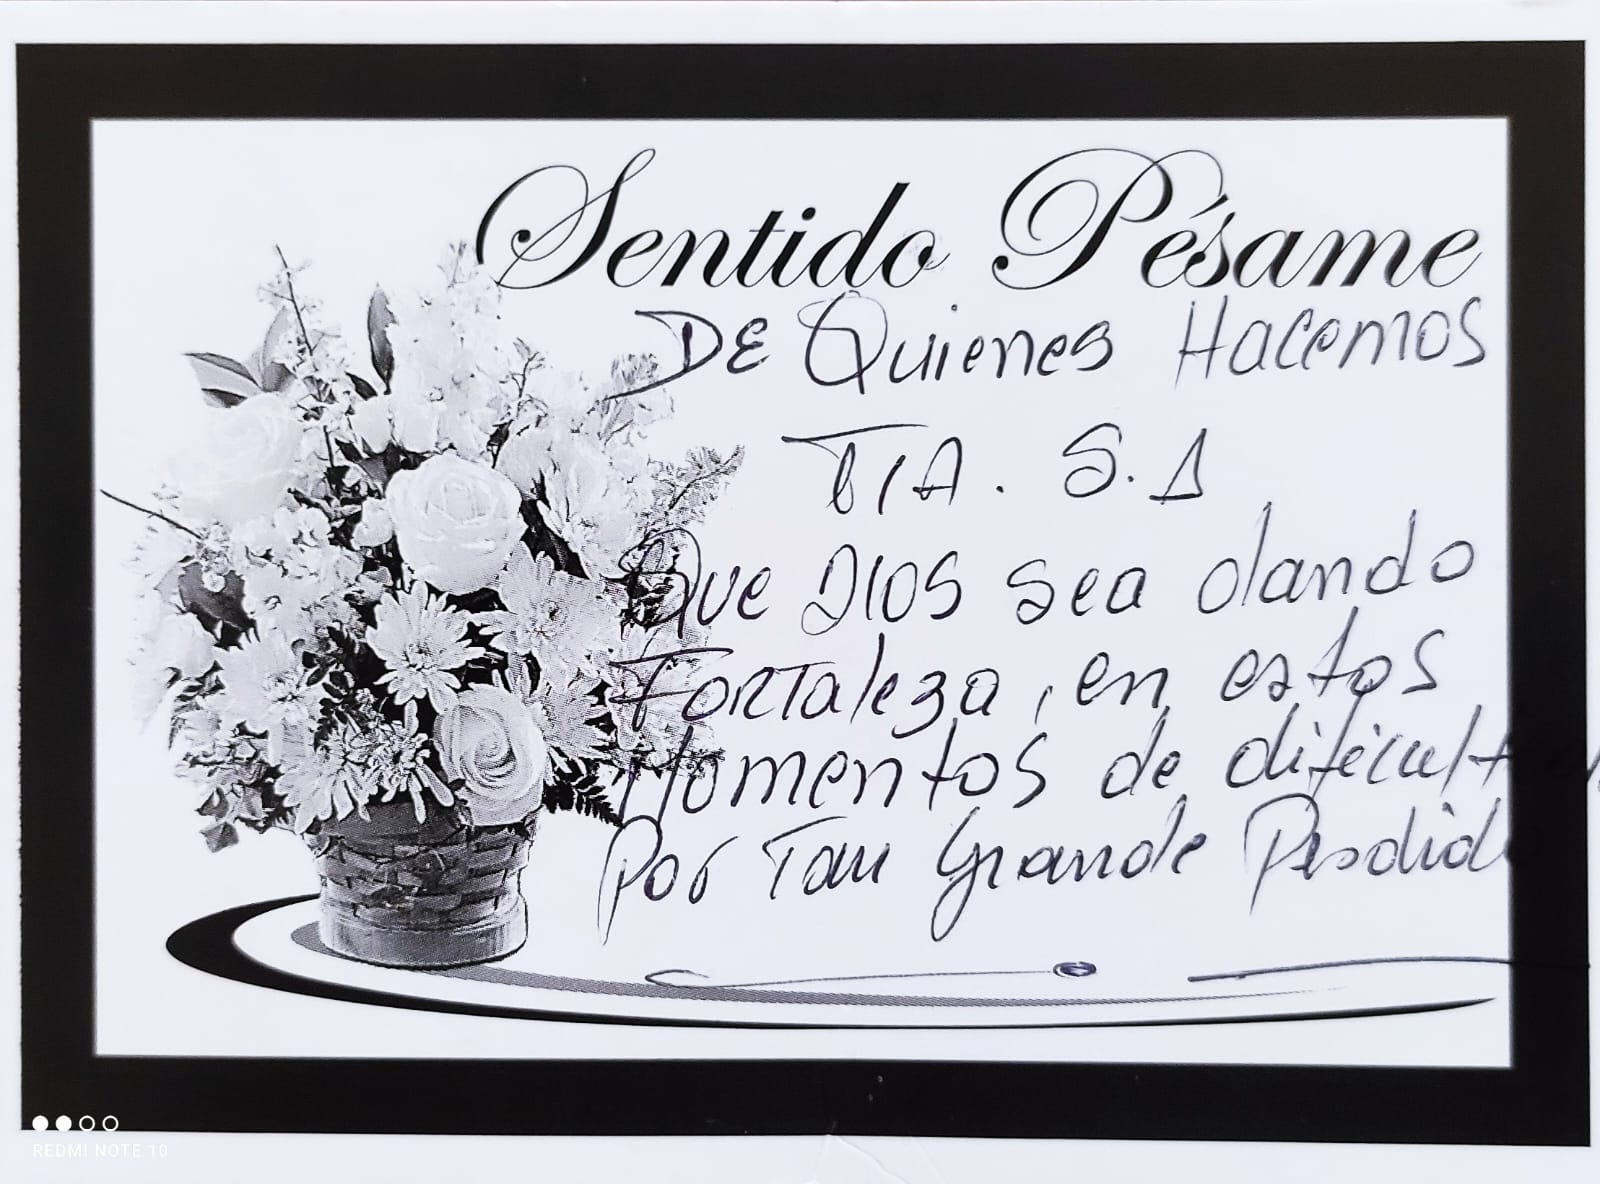 Sentido Pésame
DE Quienes Hacemos
TIA. S.A
Que Dios sea dando
Fortaleza, en estos
Momentos de
Por Tan Grande
REDMI NOTE 10